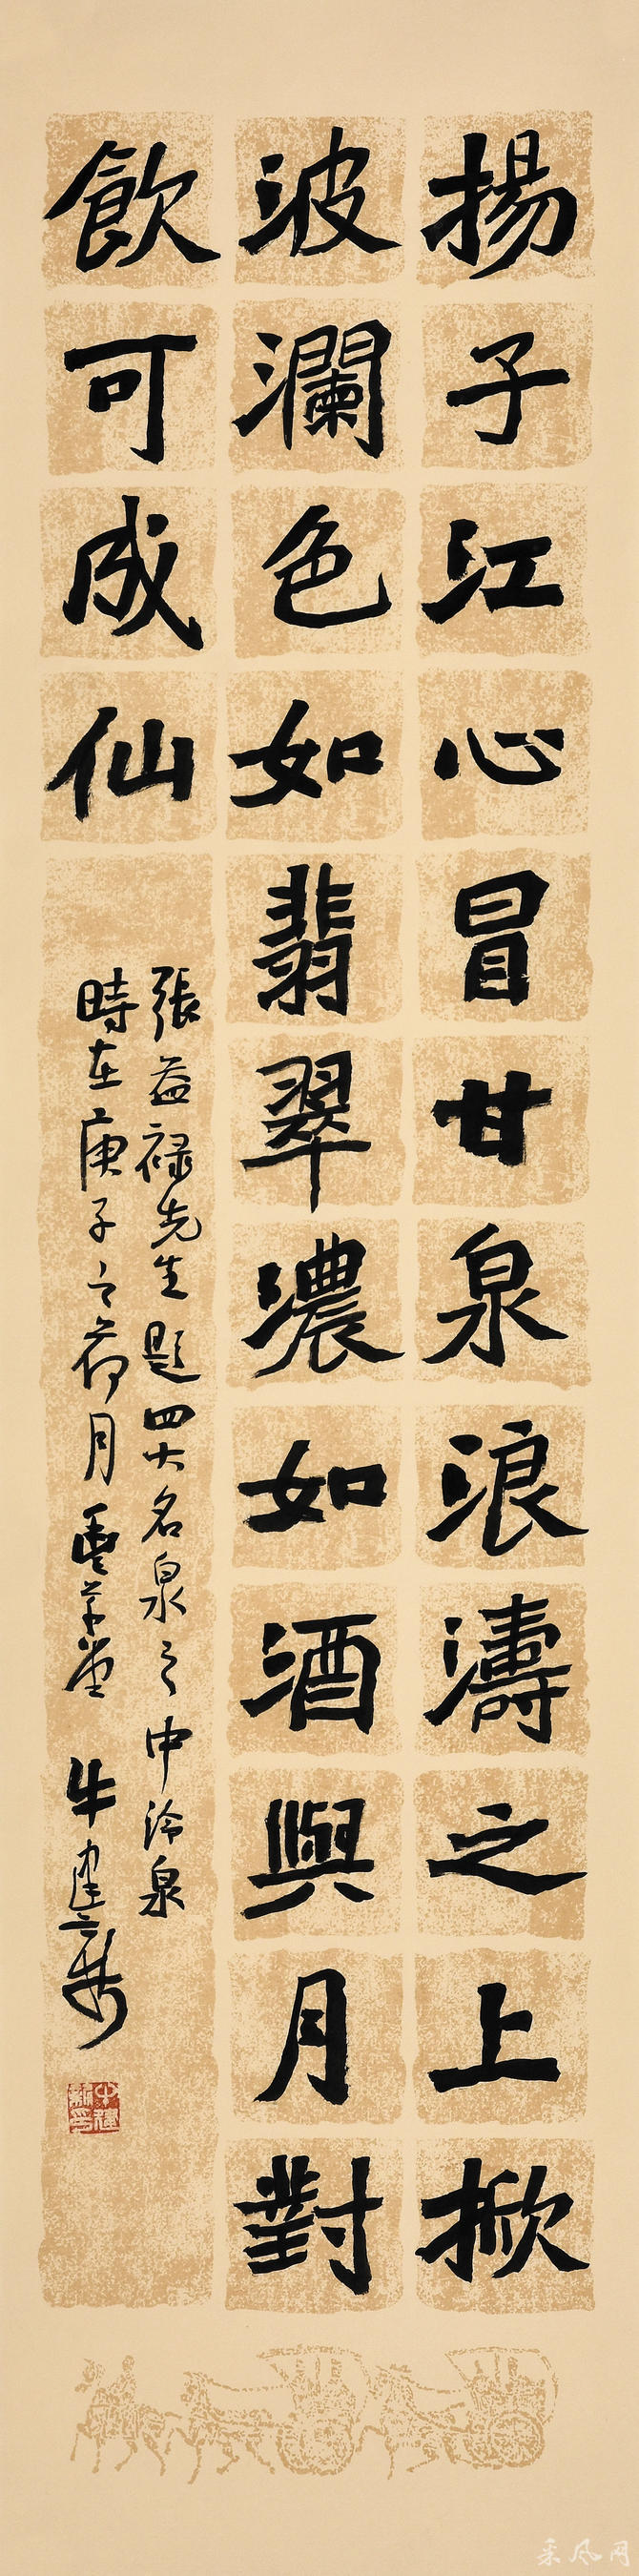 揚子江心冒甘泉浪濤之上掀
波瀾色如翡翠濃如酒與月對
飲可成仙
張益祿先生題四大名泉之中泠泉
時在庚子之荷月 草堂 牛建新
采风网